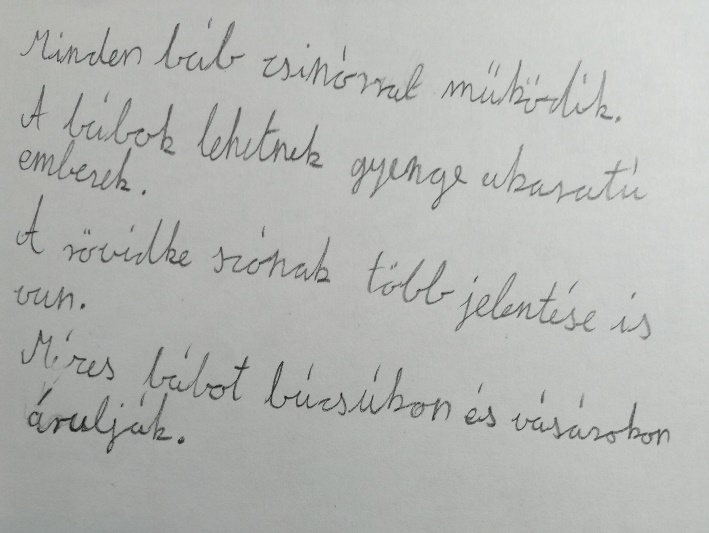 Minden báb zsinórral működik.
A bábok lehetnek gyenge akaratú
emberek.
A rövidke szónak több jelentése is
van.
Mézes bábot búcsúkon és vásárokon
árulják.